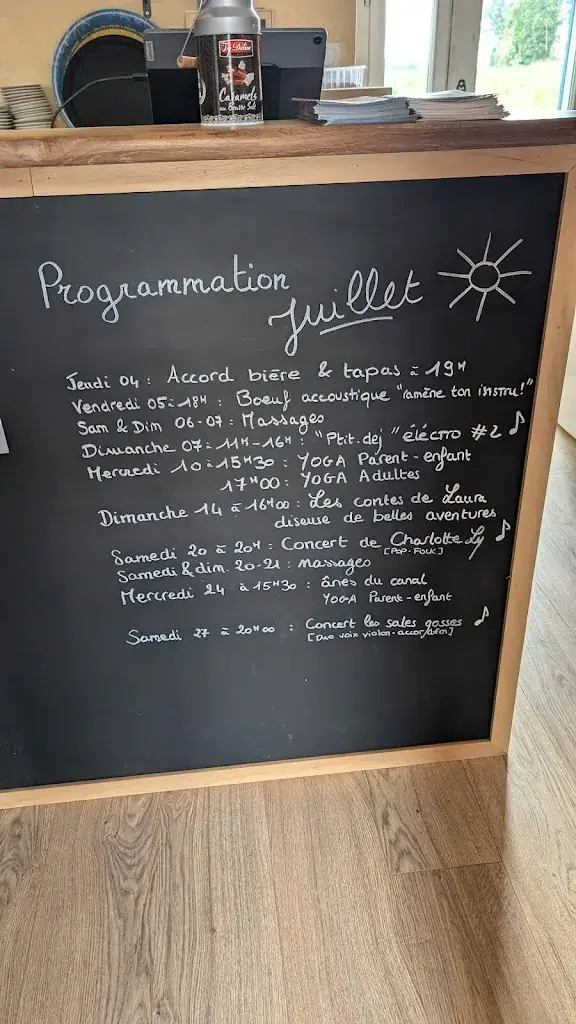 Caramels
au Beurre Salé
Programmation
Juillet
Jeudi 04 : Accord bière & tapas à 19H
Vendredi 05 à 18H : Boeuf accoustique "ramène ton instru!"
Sam & Dim 06-07 : Massages
Dimanche 07 : 11H-16H : "Ptit.dej" éléctro #2
Mercredi 10 à 15H30 : YOGA Parent-enfant
17H00 : YOGA Adultes
Dimanche 14 à 16H00 : Les contes de Laura
diseuse de belles aventures
Samedi 20 à 20H : Concert de Charlotte Ly
[POP-FOLK]
Samedi & dim. 20-21 : massages
Mercredi 24 à 15H30 : ânes du canal
YOGA Parent-enfant
Samedi 27 à 20H00 : Concert les sales gosses
[Duo voix violon-accordéon]